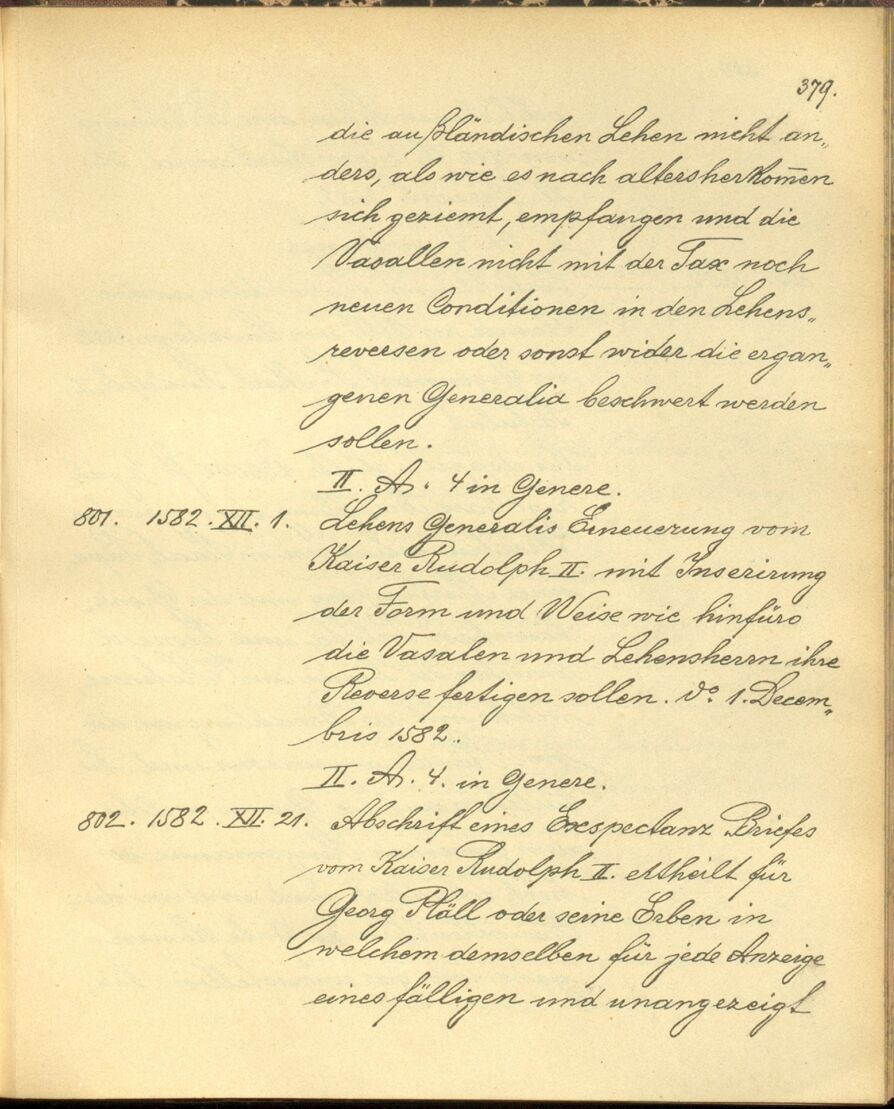 379.
die außländischen Lehen nicht an„
ders, als wie es nach altersherkom̅en
sich geziemt, empfangen und die
Vasallen nicht mit der Tax noch
neuen Conditionen in den Lehens„
reversen oder sonst wider die ergan„
genen Generalia beschwert werden
sollen.
II. A. 4 in Genere.
801. 1582. XII. 1. Lehens Generalis Erneuerung vom
Kaiser Rudolph II. mit Inserirung
der Form und Weise wie hinfüro
die Vasalen und Lehensherrn ihre
Reverse fertigen sollen. do 1. Decem„
bris 1582.
II. A. 4. in Genere.
802. 1582. XII. 21. Abschrift eines Exspectanz Briefes
vom Kaiser Rudolph II. ertheilt für
Georg Pläll oder seine Erben in
welchem demselben für jede Anzeige
eines fälligen und unangezeigt